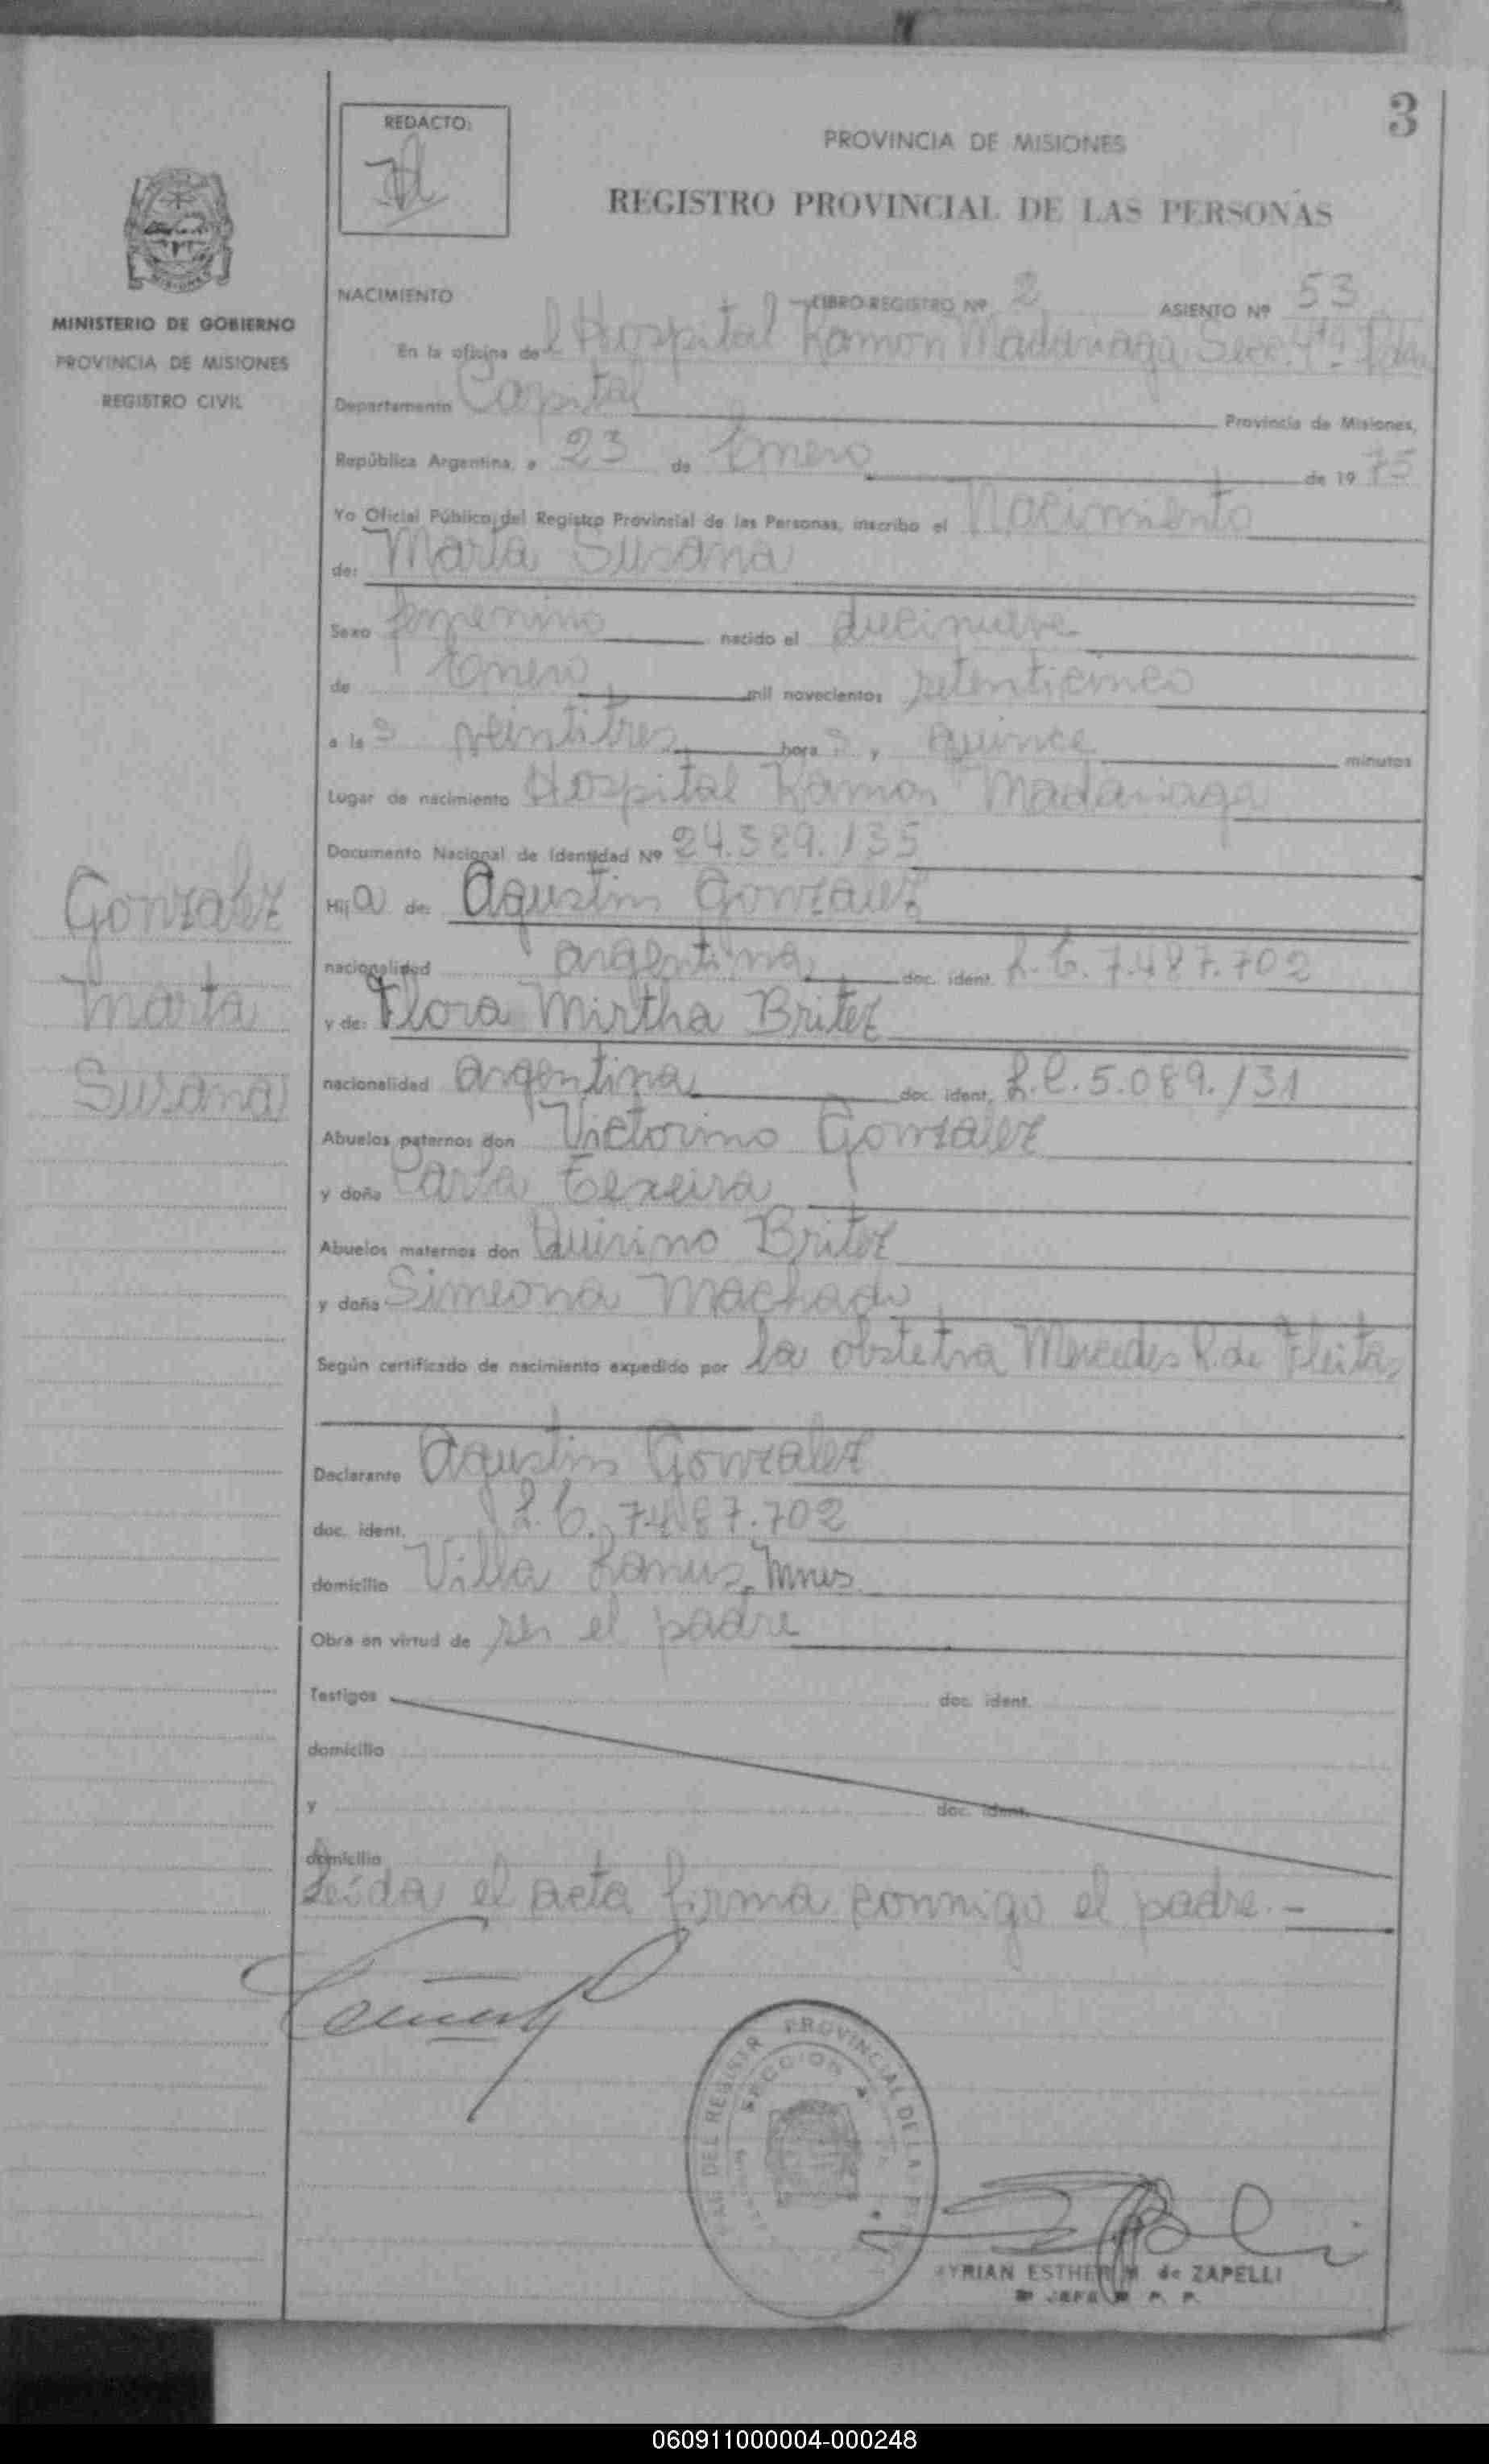 3
REDACTO:
PROVINCIA DE MISIONES
REGISTRO PROVINCIAL DE LAS PERSONAS
MINISTERIO DE GOBIERNO
PROVINCIA DE MISIONES
REGISTRO CIVIL
NACIMIENTO LIBRO REGISTRO Nº 2 ASIENTO Nº 53
En la oficina del Hospital Ramon Madariaga Secc. 4ta.
Departamento Capital Provincia de Misiones,
República Argentina, a 23 de Enero de 1975
Yo Oficial Público, del Registro Provincial de las Personas, inscribo el Nacimiento
de: Marta Susana
Sexo femenino nacido el diecinueve
de Enero mil novecientos setenticinco
a las veintitres horas, quince minutos
Lugar de nacimiento Hospital Ramon Madariaga
Documento Nacional de Identidad Nº 24.389.135
Hija de: Agustin Gonzalez
nacionalidad argentina doc. ident. L.E. 7.487.702
y de: Flora Mirtha Britez
nacionalidad argentina doc. ident. L.C. 5.089.131
Abuelos paternos don Victorino Gonzalez
y doña Carla Texeira
Abuelos maternos don Quirino Britez
y doña Simeona Machado
Según certificado de nacimiento expedido por la obstetra Mercedes R. de Fleitas
Declarante Agustin Gonzalez
doc. ident. L.E. 7.487.702
domicilio Villa Lanus, Mnes
Obra en virtud de ser el padre
Testigos doc. ident.
domicilio
y doc. ident.
domicilio
Leída el acta firma conmigo el padre.-
Gonzalez
Marta
Susana
DEL REGISTR PROVINCIAL DE LA
SECCION 4
YRIAN ESTHER M. de ZAPELLI
JEFE R. P. P.
060911000004-000248